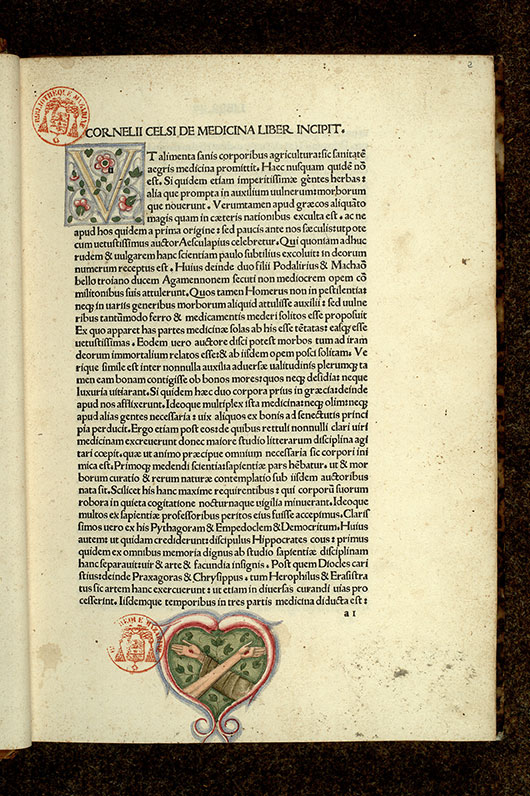 2
BIBLIOTHEQUE MAZARINE
CORNELII CELSI DE MEDICINA LIBER INCIPIT.
VT alimenta sanis corporibus agricultura: sic sanitatē
aegris medicina promittit. Haec nusquam quidē nō
est. Si quidem etiam imperitissimæ gētes herbas:
alia que prompta in auxilium uulnerum: morborum
que nouerunt. Verumtamen apud græcos aliquāto
magis quam in cæteris nationibus exculta est. ac ne
apud hos quidem a prima origine: sed paucis ante nos sæculis: utpote
cum uetustissimus auctor Aesculapius celebretur. Qui quoniam adhuc
rudem & uulgarem hanc scientiam paulo subtilius excoluit: in deorum
numerum receptus est. Huius deinde duo filii Podalirius & Machaō
bello troiano ducem Agamennonem secuti non mediocrem opem cō
militonibus suis attulerunt. Quos tamen Homerus non in pestilentia:
neq; in uariis generibus morborum aliquid attulisse auxilii: sed uulne
ribus tantūmodo ferro & medicamentis mederi solitos esse proposuit
Ex quo apparet has partes medicinæ solas ab his esse tētatas: easq; esse
uetustissimas. Eodem uero auctore disci potest morbos tum ad iram
deorum immortalium relatos esse: & ab iisdem opem posci solitam. Ve
rique simile est inter nonnulla auxilia aduersæ ualitudinis plerumq; ta
men eam bonam contigisse ob bonos mores: quos neq; desidia: neque
luxuria uitiarant. Si quidem hæc duo corpora prius in græcia: deinde
apud nos afflixerunt. Ideoque multiplex ista medicina: neq; olim: neq;
apud alias gentes necessaria: uix aliquos ex bonis ad senectutis princi
pia perducit. Ergo etiam post eos: de quibus rettuli nonnulli clari uiri
medicinam excreuerunt donec maiore studio litterarum disciplina agi
tari cœpit. quæ ut animo præcipue omnium necessaria sic corpori ini
mica est. Primoq; medendi scientia: sapientiæ pars hēbatur. ut & mor
borum curatio & rerum naturæ contemplatio sub iisdem auctoribus
nata sit. Scilicet his hanc maxime requirentibus: qui corporū suorum
robora in quieta cogitatione nocturnaque uigilia minuerant. Ideoque
multos ex sapientiæ professoribus peritos eius fuisse accepimus. Claris
simos uero ex his Pythagoram & Empedoclem & Democritum. Huius
autem: ut quidam crediderunt: discipulus Hippocrates cous: primus
quidem ex omnibus memoria dignus ab studio sapientiæ disciplinam
hanc separauit: uir & arte & facundia insignis. Post quem Diocles cari
stius: deinde Praxagoras & Chrysippus. tum Herophilus & Erasistra
tus sic artem hanc exercuerunt: ut etiam in diuersas curandi uias pro
cesserint. Iisdemque temporibus in tres partis medicina diducta est:
a1
BIBLIOTHEQUE MAZARINE